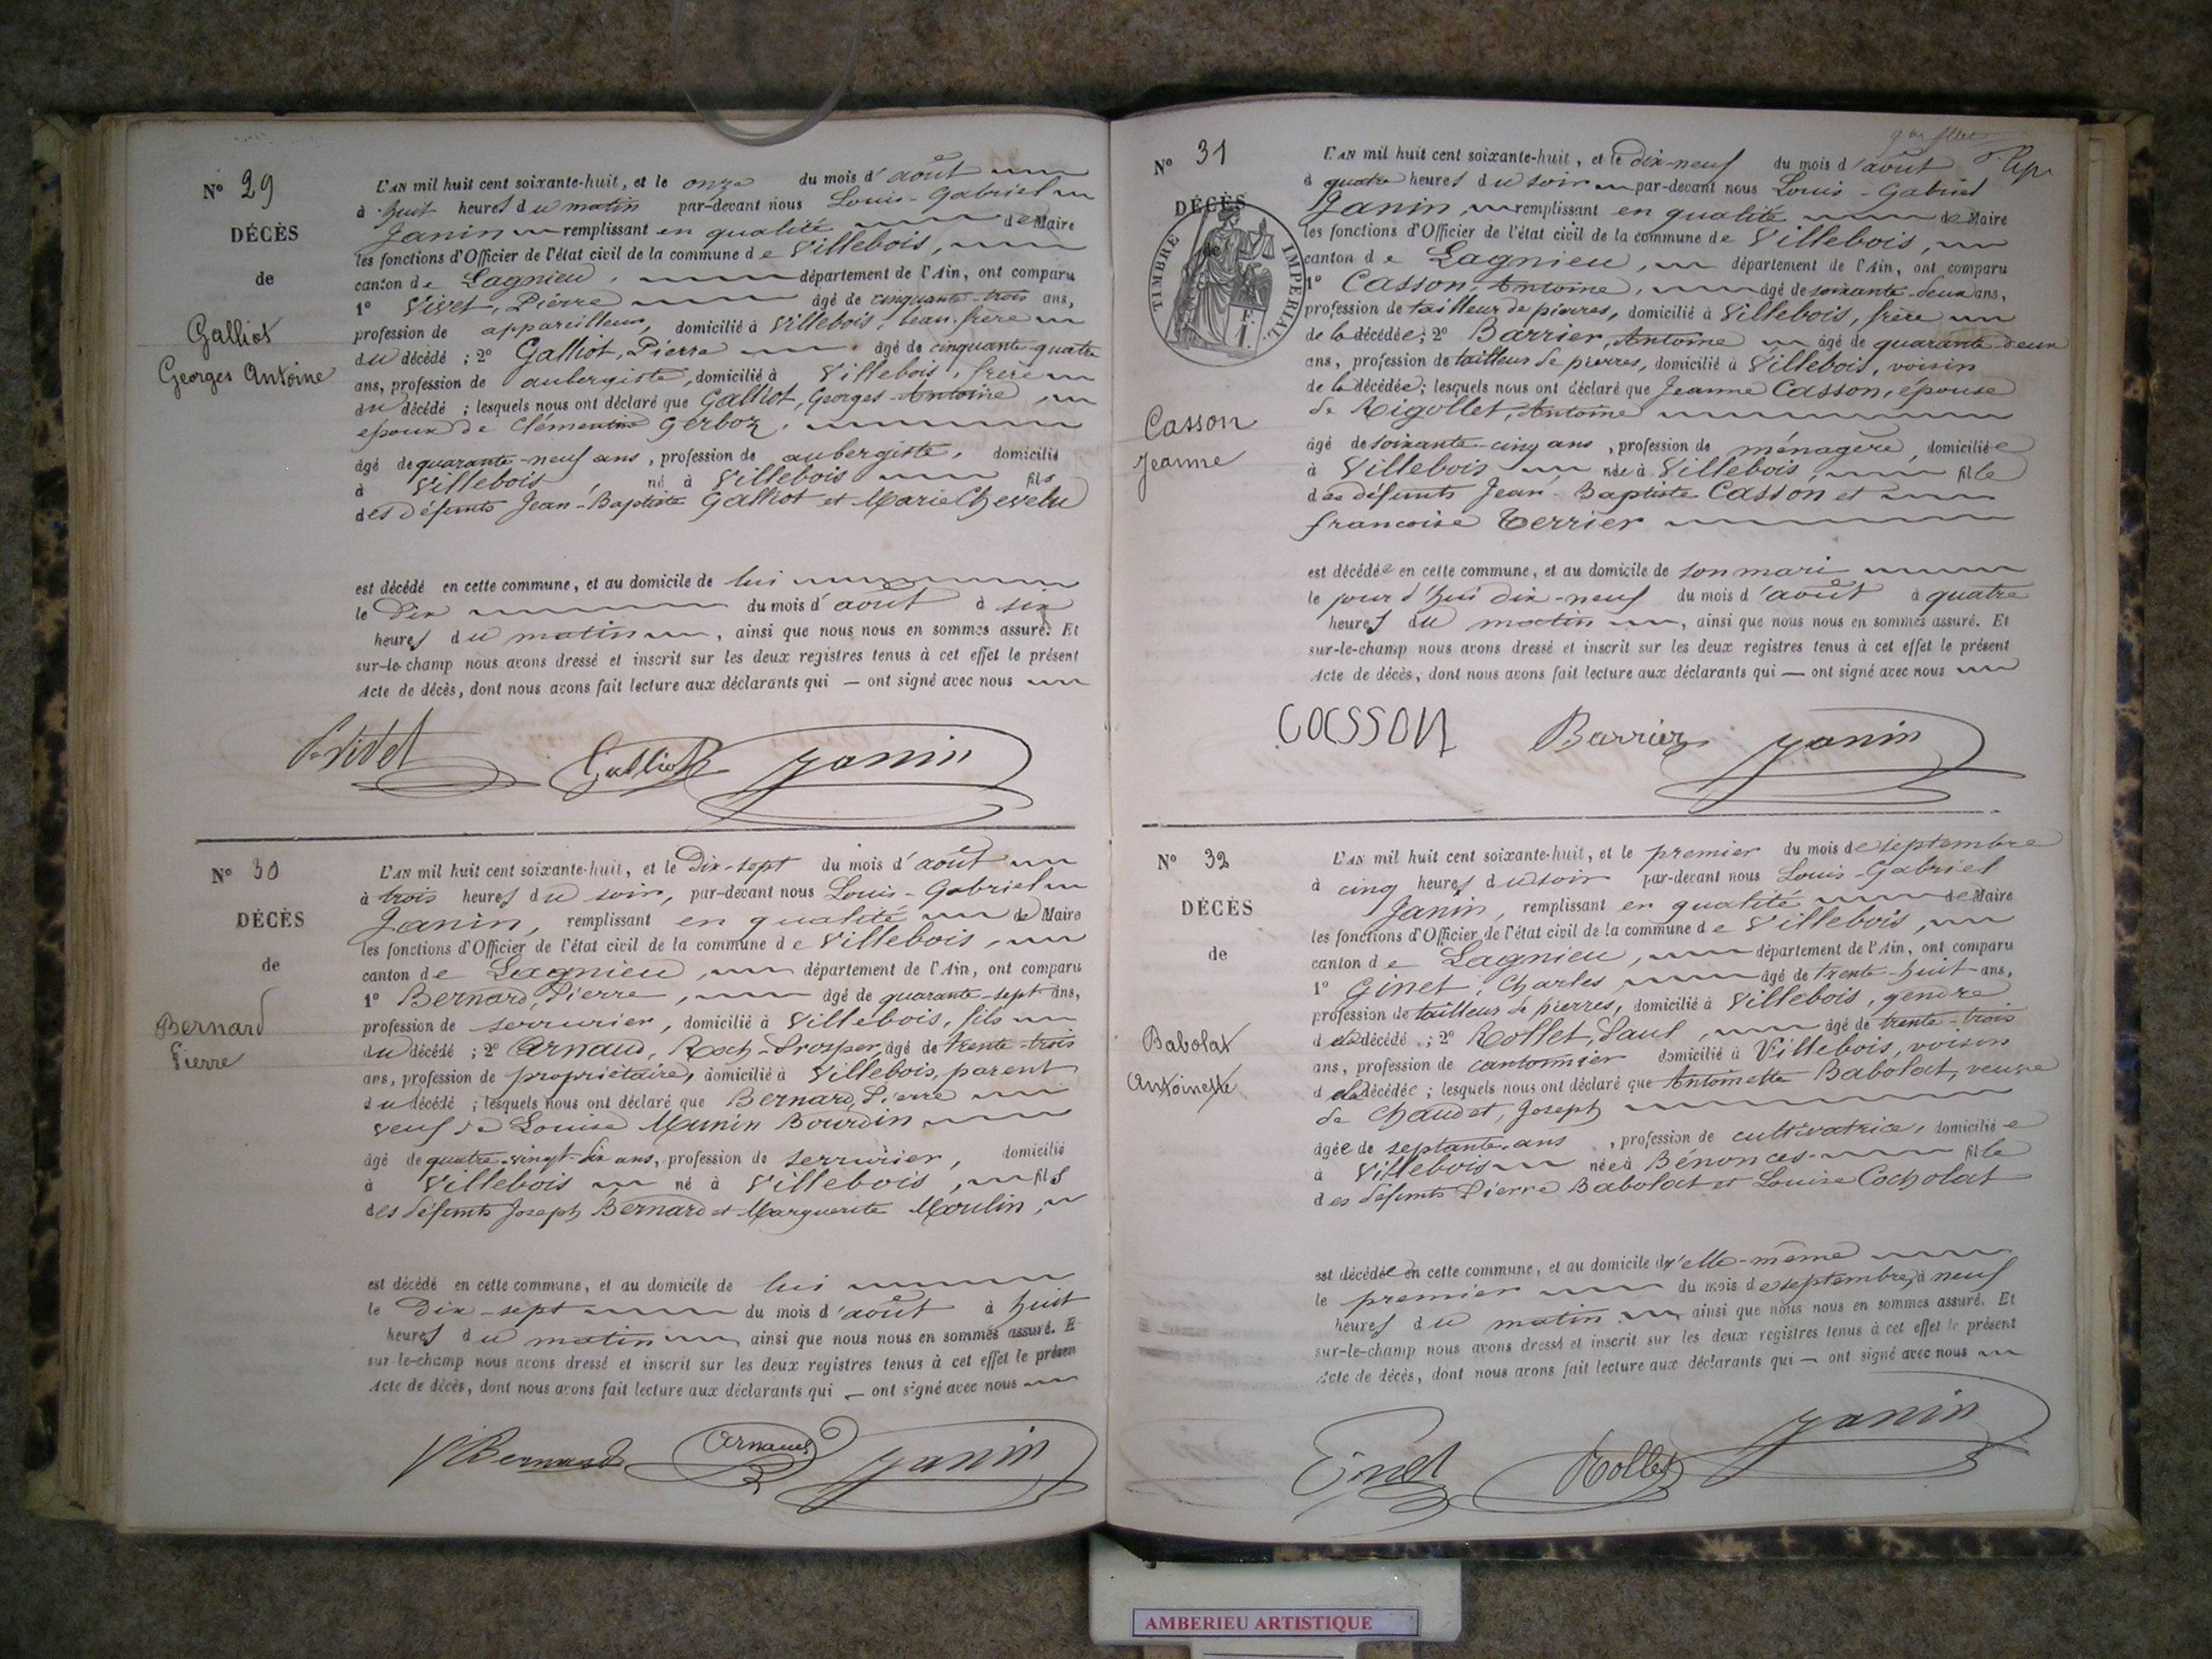 N° 29
DÉCÈS
de
Galliot
Georges Antoine
L'AN mil huit cent soixante-huit, et le onze du mois d'août
à huit heures du matin par-devant nous Louis-Gabriel
Janin remplissant en qualité de Maire
les fonctions d'Officier de l'état civil de la commune de Villebois,
canton de Lagnieu, département de l'Ain, ont comparu
1° Vivet, Pierre âgé de cinquante-trois ans,
profession de appareilleur, domicilié à Villebois, beau-frère
du décédé ; 2° Galliot, Pierre âgé de cinquante-quatre
ans, profession de aubergiste, domicilié à Villebois, frère
du décédé ; lesquels nous ont déclaré que Galliot, Georges-Antoine,
époux de Clémentine Gerboz,
âgé de quarante-neuf ans, profession de aubergiste, domicilié
à Villebois, né à Villebois fils
des défunts Jean-Baptiste Galliot et Marie Chevelu
est décédé en cette commune, et au domicile de lui
le dix du mois d'août à six
heures du matin, ainsi que nous nous en sommes assuré. Et
sur-le-champ nous avons dressé et inscrit sur les deux registres tenus à cet effet le présent
Acte de décès, dont nous avons fait lecture aux déclarants qui — ont signé avec nous
Vivet Galliot Janin
N° 30
DÉCÈS
de
Bernard
Pierre
L'AN mil huit cent soixante-huit, et le dix-sept du mois d'août
à trois heures du soir, par-devant nous Louis-Gabriel
Janin, remplissant en qualité de Maire
les fonctions d'Officier de l'état civil de la commune de Villebois,
canton de Lagnieu, département de l'Ain, ont comparu
1° Bernard, Pierre, âgé de quarante-sept ans,
profession de serrurier, domicilié à Villebois, fils
du décédé ; 2° Arnaud, Roch-Prosper, âgé de trente-trois
ans, profession de propriétaire, domicilié à Villebois, parent
du décédé ; lesquels nous ont déclaré que Bernard, Pierre
veuf de Louise Munin Bourdin
âgé de quatre-vingt- ans, profession de serrurier, domicilié
à Villebois né à Villebois, fils
des défunts Joseph Bernard et Marguerite Moulin,
est décédé en cette commune, et au domicile de lui
le dix-sept du mois d'août à huit
heures du matin ainsi que nous nous en sommes assuré. E
sur-le-champ nous avons dressé et inscrit sur les deux registres tenus à cet effet le présen
Acte de décès, dont nous avons fait lecture aux déclarants qui — ont signé avec nous
Bernard Arnaud Janin
N° 31
DÉCÈS
de
TIMBRE IMPÉRIAL
Casson
Jeanne
L'AN mil huit cent soixante-huit, et le dix-neuf du mois d'août
à quatre heures du soir par-devant nous Louis-Gabriel
Janin, remplissant en qualité de Maire
les fonctions d'Officier de l'état civil de la commune de Villebois,
canton de Lagnieu, département de l'Ain, ont comparu
1° Casson, Antoine, âgé de soixante-deux ans,
profession de tailleur de pierres, domicilié à Villebois, frère
de la décédée ; 2° Barrier, Antoine âgé de quarante-deux
ans, profession de tailleur de pierres, domicilié à Villebois, voisin
de la décédée ; lesquels nous ont déclaré que Jeanne Casson, épouse
de Rigollet, Antoine
âgé de soixante-cinq ans, profession de ménagère, domiciliée
à Villebois, née à Villebois, fille
des défunts Jean-Baptiste Casson et
françoise Terrier
est décédée en cette commune, et au domicile de son mari
le jour d'hui dix-neuf du mois d'août à quatre
heures du matin, ainsi que nous nous en sommes assuré. Et
sur-le-champ nous avons dressé et inscrit sur les deux registres tenus à cet effet le présent
Acte de décès, dont nous avons fait lecture aux déclarants qui — ont signé avec nous
COCSSON Barrier Janin
N° 32
DÉCÈS
de
Babolat
Antoinette
L'AN mil huit cent soixante-huit, et le premier du mois de septembre
à cinq heures du soir par-devant nous Louis-Gabriel
Janin, remplissant en qualité de Maire
les fonctions d'Officier de l'état civil de la commune de Villebois,
canton de Lagnieu, département de l'Ain, ont comparu
1° Ginet, Charles âgé de trente-huit ans,
profession de tailleur de pierres, domicilié à Villebois, gendre
de la décédé ; 2° Rollet, Paul, âgé de trente-trois
ans, profession de cantonnier domicilié à Villebois, voisin
de la décédée ; lesquels nous ont déclaré que Antoinette Babolat, veuve
de Chaudet, Joseph
âgée de septante ans, profession de cultivatrice, domiciliée
à Villebois née à Bénonces fille
des défunts Pierre Babolat et Louise Cocholat
est décédée en cette commune, et au domicile d'elle-même
le premier du mois de septembre, à neuf
heures du matin ainsi que nous nous en sommes assuré. Et
sur-le-champ nous avons dressé et inscrit sur les deux registres tenus à cet effet le présent
Acte de décès, dont nous avons fait lecture aux déclarants qui — ont signé avec nous
Ginet Rollet Janin
AMBERIEU ARTISTIQUE